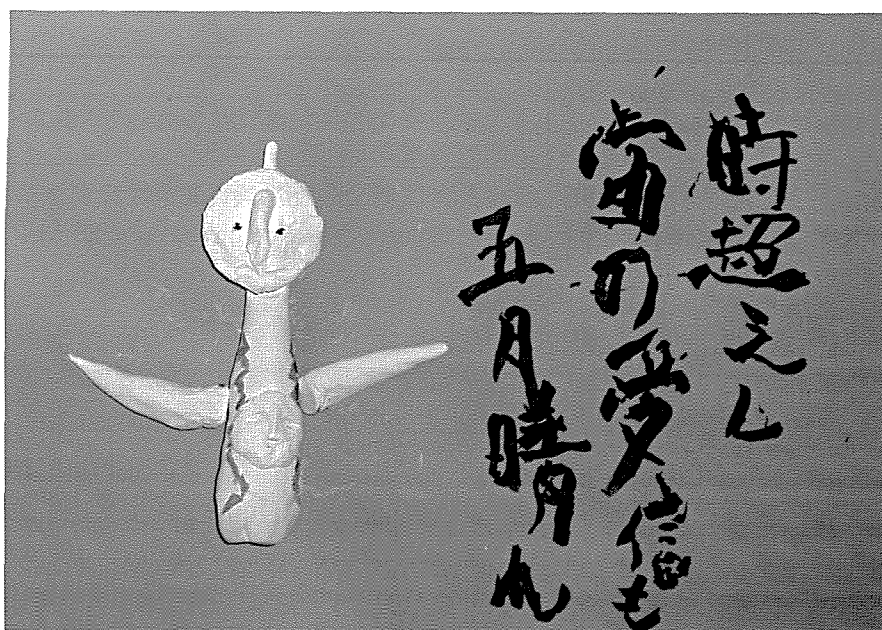 時超えし
の愛も
五月晴れ